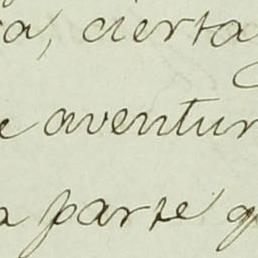 a, cierta
e aventur
a parte q